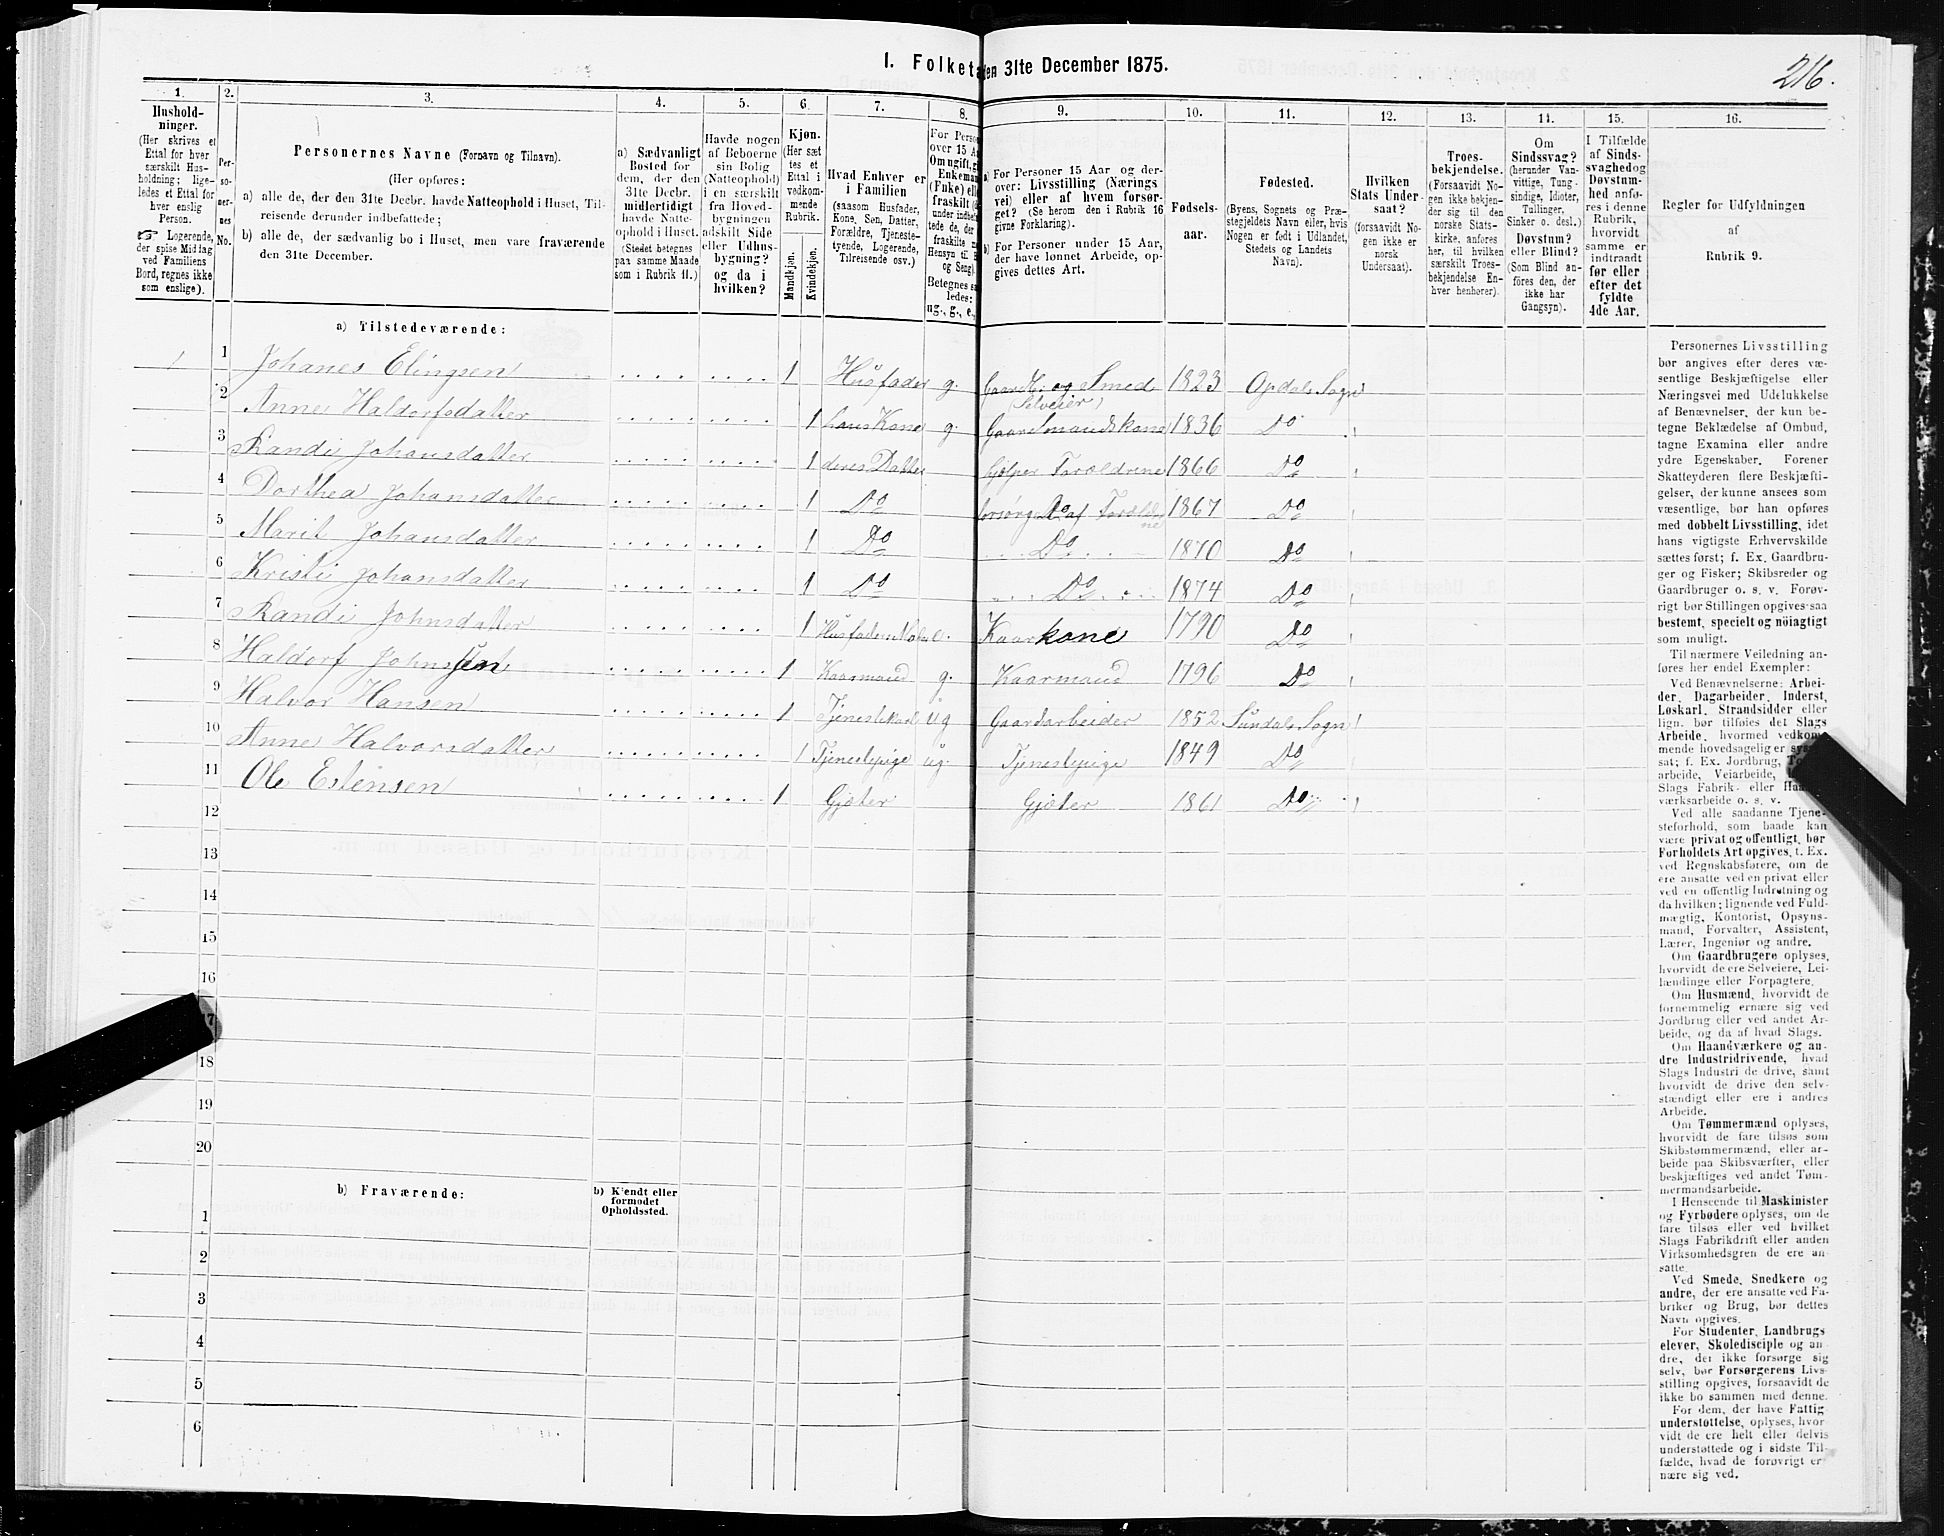 1. Folketæ
den 31te December 1875.
216.
1. 2. 3. 4. 5. 6. 7. 8. 9. 10. 11. 12. 13. 14. 15. 16.
Hushold-
ninger.
(Her skrives et
Ettal for hver
særskilt Hus-
holdning; lige-
ledes et Ettal for
hver enslig
Person.
☞ Logerende,
der spise Middag
ved Familiens
Bord, regnes ikke
som enslige).
Per-
so-
ner-
nes
No.
Personernes Navne (Fornavn og Tilnavn).
(Her opføres:
a) alle de, der den 31te Decbr. havde Natteophold i Huset, Til-
reisende derunder indbefattede;
b) alle de, der sædvanlig bo i Huset, men vare fraværende
den 31te December.
a) Sædvanligt
Bosted for
dem, der den
31te Decbr.
midlertidigt
havde Natte-
ophold i Huset.
(Stedet betegnes
paa samme Maade
som i Rubrik 11.)
Havde nogen
af Beboerne
sin Bolig
(Natteophold)
i en særskilt
fra Hoved-
bygningen
adskilt Side
eller Udhus-
bygning?
og da i
hvilken?
Kjøn.
(Her sæt
tes et
Ettal i
vedkom-
mende
Rubrik.
Mandkjøn.
Kvindekjøn.
Hvad Enhver er
i Familien
(saasom Husfader,
Kone, Søn, Datter,
Forældre, Tjeneste-
tyende, Logerende,
Tilreisende osv.)
For Perso
over 15 A
Om ugift, gi
Enkemand
(Enke) ell
fraskilt (
under indbef
tede de, der
fraskilte
Hensyn til B
og Seng).
Betegnes sa
ledes:
ug., g., e.,
a) For Personer 15 Aar og der-
over: Livsstilling (Nærings
vei) eller af hvem forsør-
get? (Se herom den i Rubrik 16
givne Forklaring).
b) For Personer under 15 Aar,
der have lønnet Arbeide, op-
gives dettes Art.
Fødsels-
aar.
Fødested.
(Byens, Sognets og Præ-
stegjeldets Navn eller, hvis
Nogen er født i Udlandet,
Stedets og Landets
Navn).
Hvilken
Stats Under-
saat?
(forsaavidt No-
gen ikke er
norsk
Undersaat).
Troes-
bekjendelse.
(Forsaavidt No-
gen ikke bekjen-
der sig til den
norske Stats-
kirke, anføres
her, til hvilken
særskilt Troes-
bekjendelse En-
hver henhører).
Om
Sindssvag?
(herunder Van-
vittige, Tung-
sindige, Idioter,
Tullinger,
Sinker o. desl.)
Døvstum?
eller Blind?
(Som Blind an-
føres den, der
ikke har
Gangsyn).
I Tilfælde
af Sinds-
svaghed og
Døvstum-
hed anfø-
res i denne
Rubrik,
hvorvidt
samme er
indtraadt
før eller
efter det
fyldte
4de Aar.
Regler for Udfyldningen
af
Rubrik 9.
a) Tilstedeværende:
1 1 Johanes Elingsen 1 Husfader g. Gaardb. og Smed (Selveier) 1823 Opdals Sogn
2 Anne Haldorsdatter 1 hans Kone g. Gaardmandskone 1836 Do
3 Randi Johansdatter 1 deres Datter hjelper Forældrene 1866 Do
4 Dorthea Johansdatter 1 Do forsørges af Forældrene 1867 Do
5 Marit Johansdatter 1 Do Do 1870 Do
6 Kristi Johansdatter 1 Do Do 1874 Do
7 Randi Johnsdatter 1 Husfaders Moder e. Kaarkone 1790 Do
8 Haldorf Johnssen 1 Kaarmand g. Kaarmand 1796 Do
9 Halvor Hansen 1 Tjenestekarl ug Gaardarbeider 1852 Sundals Sogn
10 Anne Halvorsdatter 1 Tjenestepige ug. Tjenestepige 1849 Do
11 Ole Estensen 1 Gjæter Gjæter 1861 Do
12
13
14
15
16
17
18
19
20
b) Fraværende:
b) Kjendt eller
formodet
Opholdssted.
1
2
3
4
5
6
Personernes Livsstilling
bør angives efter deres væ-
sentlige Beskjæftigelse eller
Næringsvei med Udelukkelse
af Benævnelser, der kun be-
tegne Beklædelse af Ombud,
tagne Examina eller andre
ydre Egenskaber. Forener
Skatteyderen flere Beskjæfti-
gelser, der kunne ansees som
væsentlige, bør han opføres
med dobbelt Livsstilling, idet
hans vigtigste Erhvervskilde
sættes først; f. Ex. Gaardbru-
ger og Fisker; Skibsreder og
Gaardbruger o. s. v. Forøv-
rigt bør Stillingen opgives saa
bestemt, specielt og nöiagtigt
som muligt.
Til nærmere Veiledning an-
føres her endel Exempler:
Ved Benævnelserne: Arbei-
der, Dagarbeider, Inderst,
Løskarl, Strandsidder eller
lign. bør tilføies det Slags
Arbeide, hvormed vedkom-
mende hovedsagelig er syssel
sat; f. Ex. Jordbrug,
arbeide, Veiarbeide,
Slags Fabrik- eller
værksarbeide o. s. v.
Ved alle saadanne Tjene-
steforhold, som baade kan
være privat og offentligt, bør
Forholdets Art opgives, t. Ex.
ved Regnskabsførere, om de
ere ansatte ved en privat eller
ved en offentlig Indretning og
da hvilken; lignende ved Fuld-
mægtig, Kontorist, Opsyns-
mand, Forvalter, Assistent,
Lærer, Ingeniør og andre.
Om Gaardbrugere oplyses,
hvorvidt de ere Selveiere, Lei-
lændinge eller Forpagtere.
Om Husmænd, hvorvidt de
fornemmelig ernære sig ved
Jordbrug eller ved andet Ar-
beide, og da af hvad Slags.
Om Haandværkere og an-
dre Industridrivende, hvad
Slags Industri de drive, samt
hvorvidt de drive den selv-
stændigt eller ere i andres
Arbeide.
Om Tømmermænd oplyses,
hvorvidt de fare tilsøs som
Skibstømmermænd, eller ar-
beide paa Skibsværfter, eller
beskjæftiges ved andet Tøm-
mermandsarbeide.
I Henseende til Maskinister
og Fyrbødere oplyses, om de
fare tilsøs eller ved hvilket
Slags Fabrikdrift eller anden
Virksomhedsgren de ere an-
satte.
Ved Smede, Snedkere og
andre, der ere ansatte ved Fa-
briker og Brug, bør dettes
Navn opgives.
For Studenter, Landbrugs
elever, Skoledisciple og an-
dre, der ikke forsørge sig
selv, bør Forsørgerens Livs-
stilling opgives, forsaavidt de
ikke bo sammen med denne.
For dem, der have Fattig
understøttelse, oplyses, hvor-
vidt de ere helt eller delvis
understøttede og i sidste Til-
fælde, hvad de forøvrigt er
nære sig ved.